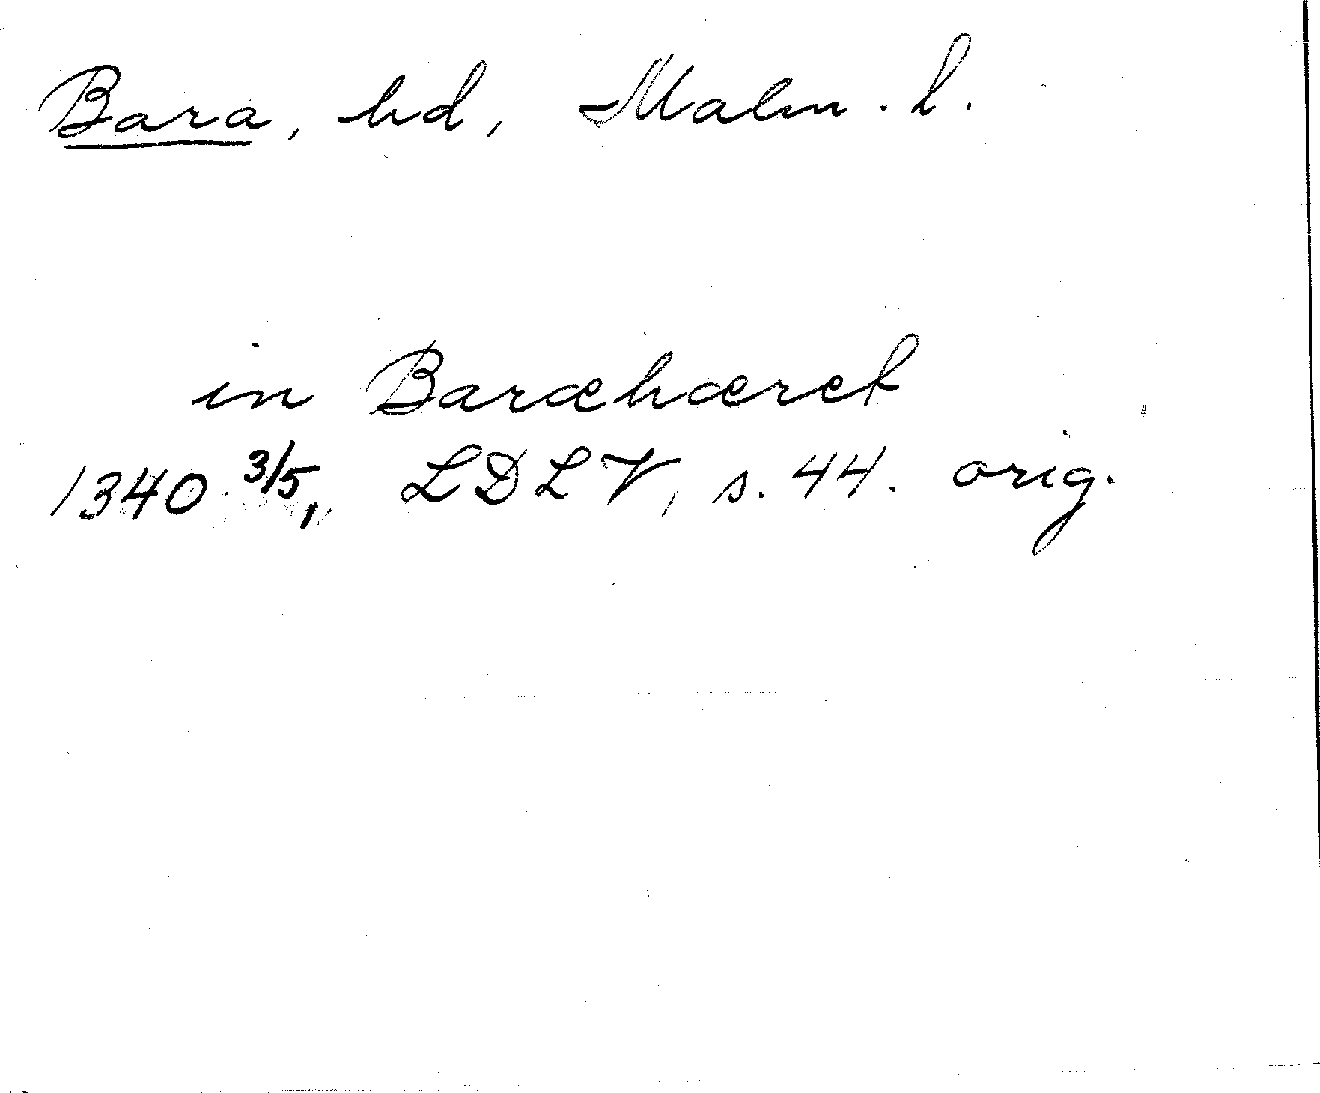 Bara, hd, Malm. l.
in Baræhæret
1340 3/5, LDLV, s. 44. orig.